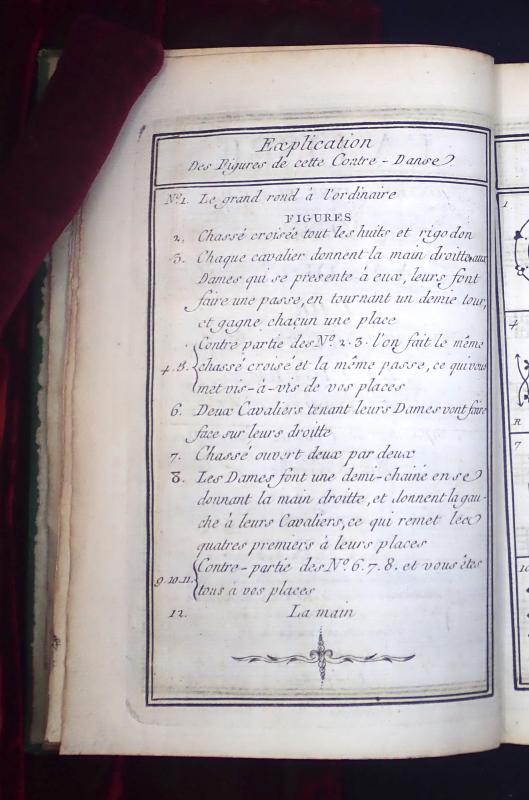 Explication
Des Figures de cette Contre-Danse
No. 1. Le grand rond à l'ordinaire
FIGURES
2. Chassé croisée tout les huits et rigodon
3. Chaque cavalier donnent la main droitte aux
Dames qui se presente à eux, leurs font
faire une passe, en tournant un demie tour,
et gagne chacun une place
Contre partie des No. 2. 3. l'on fait le même
4. 5. chassé croisé et la même passe, ce qui vous
met vis-à-vis de vos places
6. Deux Cavaliers tenant leurs Dames vont faire
face sur leurs droitte
7. Chassé ouvert deux par deux
8. Les Dames font une demi-chaine en se
donnant la main droitte, et donnent la gau-
che à leurs Cavaliers, ce qui remet les
quatres premiers à leurs places
Contre-partie des No. 6. 7. 8. et vous êtes
9. 10. 11. tous à vos places
12. La main
1
4
R
7
10